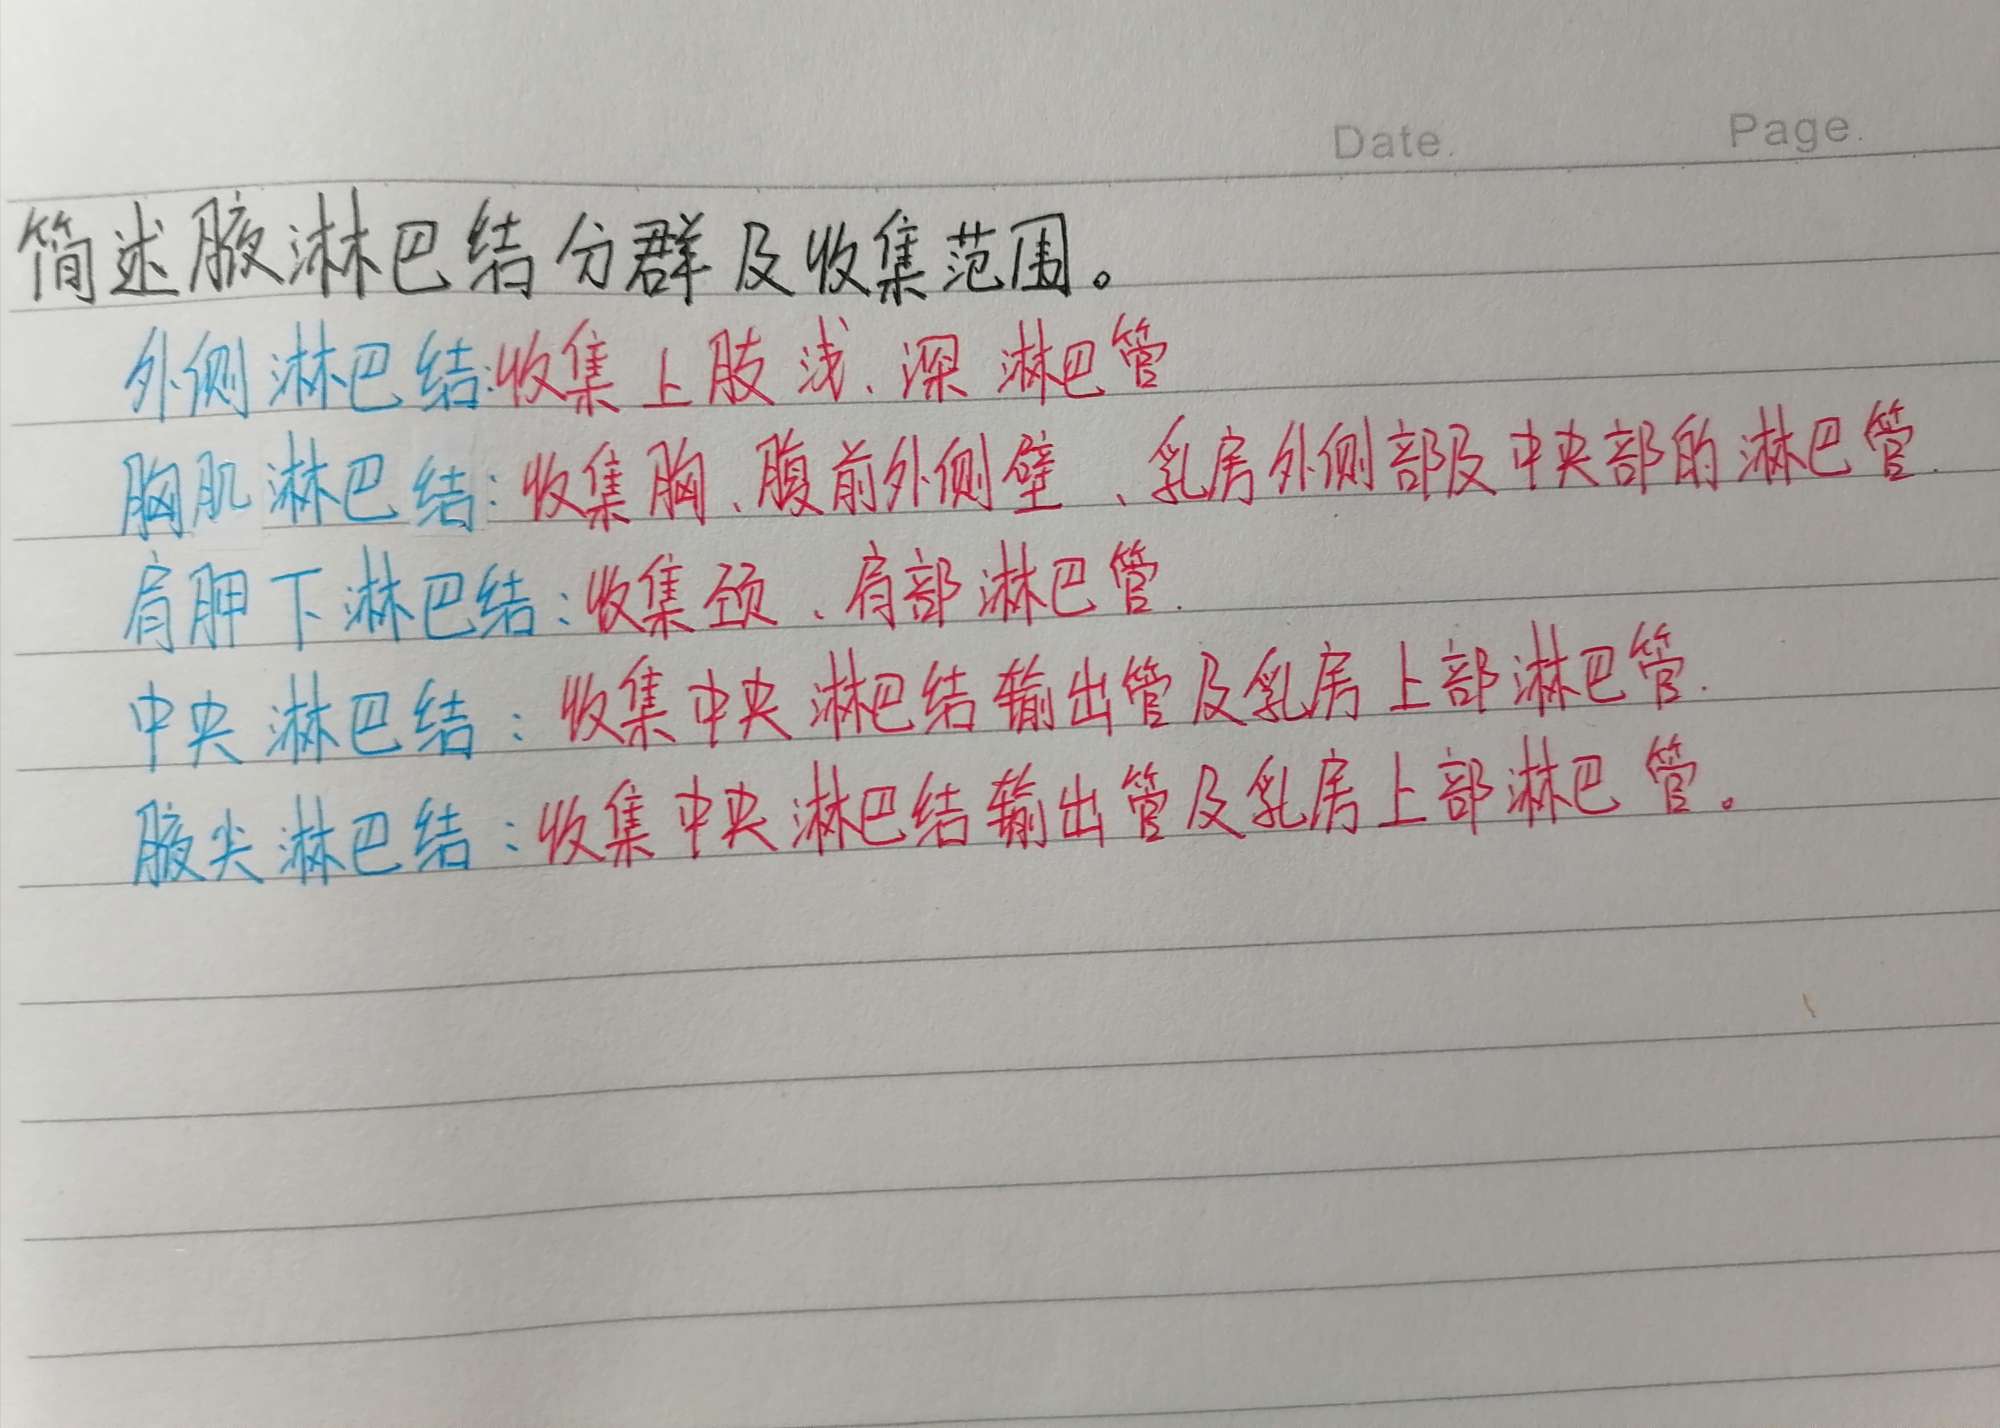 Date. Page.
简述腋淋巴结分群及收集范围。
外侧淋巴结:收集上肢浅、深淋巴管
胸肌淋巴结:收集胸、腹前外侧壁、乳房外侧部及中央部的淋巴管.
肩胛下淋巴结:收集颈、肩部淋巴管.
中央淋巴结:收集中央淋巴结输出管及乳房上部淋巴管.
腋尖淋巴结:收集中央淋巴结输出管及乳房上部淋巴管。